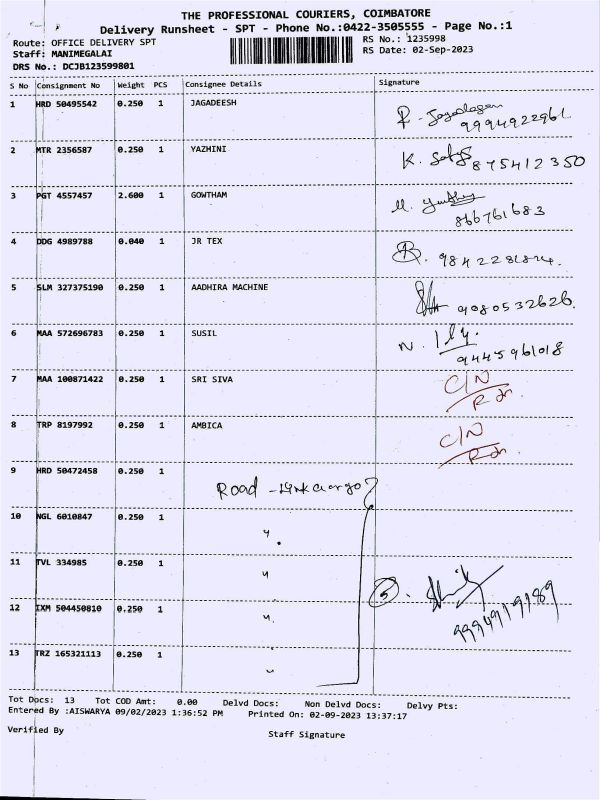 THE PROFESSIONAL COURIERS, COIMBATORE
Delivery Runsheet - SPT - Phone No.:0422-3505555 - Page No.:1
Route: OFFICE DELIVERY SPT
RS No.: 1235998
Staff: MANIMEGALAI
RS Date: 02-Sep-2023
DRS No.: DCJB123599801
S No Consignment No Weight PCS Consignee Details Signature
1 HRD 50495542 0.250 1 JAGADEESH
9994922961
2 MTR 2356587 0.250 1 YAZHINI
K. 875412350
3 PGT 4557457 2.600 1 GOWTHAM
866761683
4 DDG 4989788 0.040 1 JR TEX
5 SLM 327375190 0.250 1 AADHIRA MACHINE
9080532626.
6 MAA 572696783 0.250 1 SUSIL
N.
9445961018
7 MAA 100871422 0.250 1 SRI SIVA
C/N
8 TRP 8197992 0.250 1 AMBICA
C/N
9 HRD 50472458 0.250 1
Road -
10 NGL 6010847 0.250 1
11 TVL 334985 0.250 1
12 IXM 504450810 0.250 1
13 TRZ 165321113 0.250 1
Tot Docs: 13 Tot COD Amt: 0.00 Delvd Docs: Non Delvd Docs: Delvy Pts:
Entered By :AISWARYA 09/02/2023 1:36:52 PM Printed On: 02-09-2023 13:37:17
Verified By Staff Signature